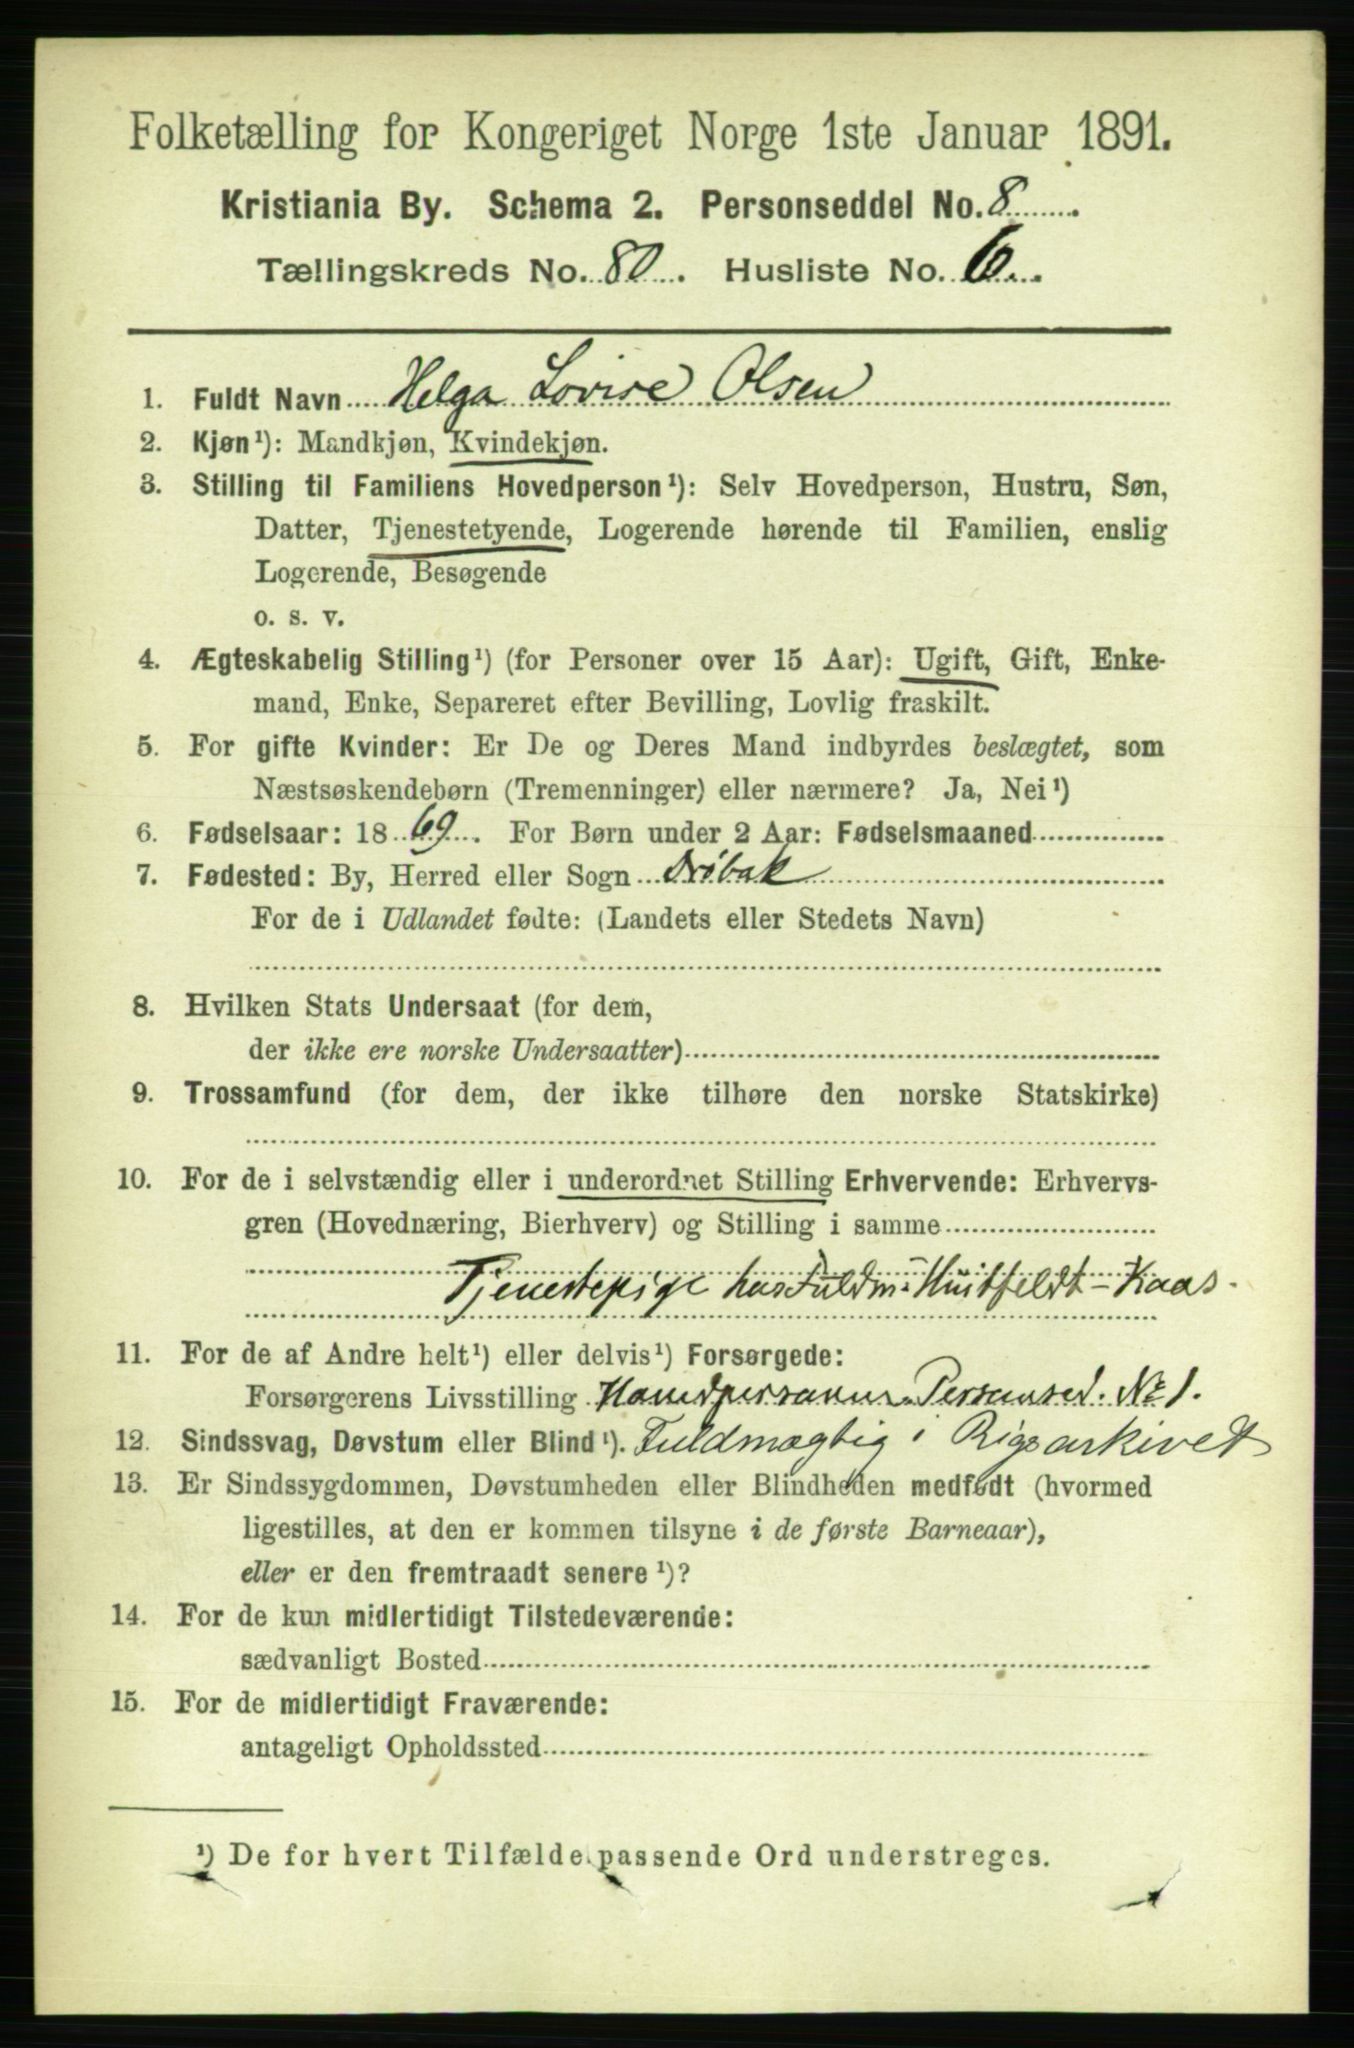 Folketælling for Kongeriget Norge 1ste Januar 1891.
Kristiania By. Schema 2. Personseddel No. 8.
Tællingskreds No. 80. Husliste No. 6.
1. Fuldt Navn Helga Lovise Olsen
2. Kjøn¹): Mandkjøn, Kvindekjøn.
3. Stilling til Familiens Hovedperson¹): Selv Hovedperson, Hustru, Søn,
Datter, Tjenestetyende, Logerende hørende til Familien, enslig
Logerende, Besøgende
o. s. v.
4. Ægteskabelig Stilling¹) (for Personer over 15 Aar): Ugift, Gift, Enke-
mand, Enke, Separeret efter Bevilling, Lovlig fraskilt.
5. For gifte Kvinder: Er De og Deres Mand indbyrdes beslægtet, som
Næstsøskendebørn (Tremenninger) eller nærmere? Ja, Nei¹)
6. Fødselsaar: 1869. For Børn under 2 Aar: Fødselsmaaned
7. Fødested: By, Herred eller Sogn Drøbak
For de i Udlandet fødte: (Landets eller Stedets Navn)
8. Hvilken Stats Undersaat (for dem,
der ikke ere norske Undersaatter)
9. Trossamfund (for dem, der ikke tilhøre den norske Statskirke)
10. For de i selvstændig eller i underordnet Stilling Erhvervende: Erhvervs-
gren (Hovednæring, Bierhverv) og Stilling i samme
Tjenestepige hos Fuldm. Huitfeldt-Kaas.
11. For de af Andre helt¹) eller delvis¹) Forsørgede:
Forsørgerens Livsstilling Personsed. No 1.
12. Sindssvag, Døvstum eller Blind¹). Fuldmægtig i Rigsarkivet
13. Er Sindssygdommen, Døvstumheden eller Blindheden medfødt (hvormed
ligestilles, at den er kommen tilsyne i de første Barneaar),
eller er den fremtraadt senere¹)?
14. For de kun midlertidigt Tilstedeværende:
sædvanligt Bosted
15. For de midlertidigt Fraværende:
antageligt Opholdssted
¹) De for hvert Tilfælde passende Ord understreges.